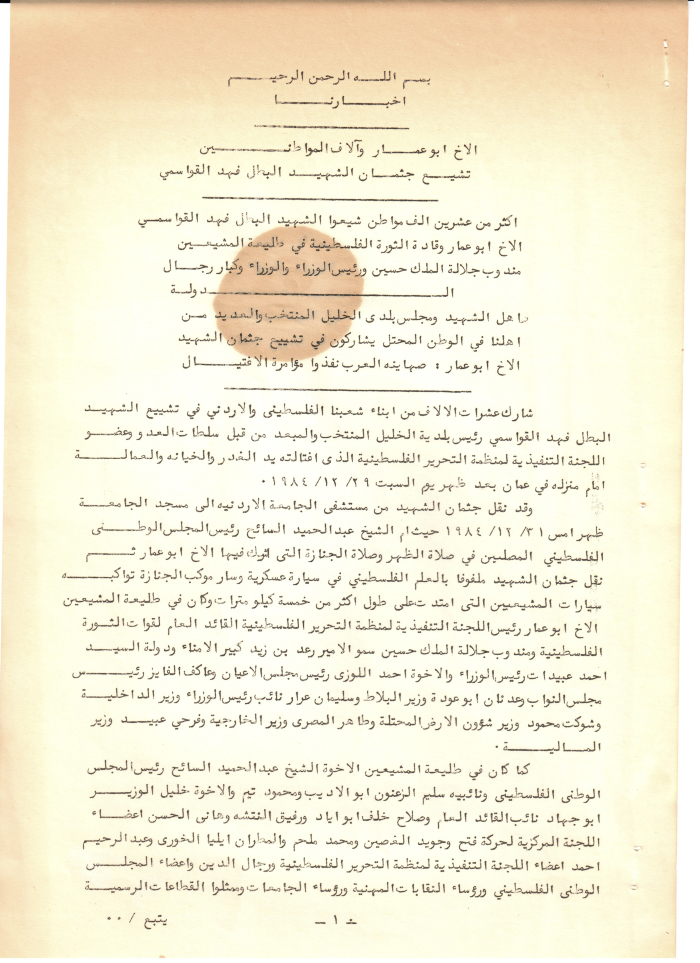 بسم اللـه الرحمن الرحيـم
اخبـارنـا
الاخ ابو عمـار وآلاف المواطنـين
تشيـع جثمـان الشهيـد البطل فهد القواسمي
اكثر من عشرين الف مواطن شيعوا الشهيد البطل فهد القواسمـي
الاخ ابو عمار وقادة الثورة الفلسطينية في طليعة المشيعـين
مندوب جلالة الملك حسين ورئيس الوزراء والوزراء وكبار رجـال
الـــدولة
اهل الشهيد ومجلس بلدى الخليل المنتخب والعديد مـن
اهلنا في الوطن المحتل يشاركون في تشييع جثمان الشهيد
الاخ ابو عمار : صهاينه العرب نفذوا مؤامرة الاغتيـال
شارك عشرات الالاف من ابناء شعبنا الفلسطينى والاردني في تشييع الشهيـد
البطل فهد القواسمي رئيس بلدية الخليل المنتخب والمبعد من قبل سلطات العدو وعضـو
اللجنة التنفيذية لمنظمة التحرير الفلسطينية الذى اغتالته يد الغدر والخيانه والعمالـة
امام منزله في عمان بعد ظهر يوم السبت ٢٩/ ١٢/ ١٩٨٤ ٠
وقد نقل جثمان الشهيد من مستشفى الجامعة الاردنيه الى مسجد الجامعـة
ظهر امس ٣١/ ١٢/ ١٩٨٤ حيث ام الشيخ عبد الحميد السائح رئيس المجلس الوطنـى
الفلسطيني المصلين في صلاة الظهر وصلاة الجنازة التى فيها الاخ ابو عمار ثـم
نقل جثمان الشهيد ملفوفا بالعلم الفلسطيني في سيارة عسكرية وسار موكب الجنازة تواكبـه
سيارات المشيعيين التى امتدت على طول اكثر من خمسة كيلو مترات وكان في طليعة المشيعين
الاخ ابو عمار رئيس اللجنة التنفيذية لمنظمة التحرير الفلسطينية القائد العام لقوات الثـورة
الفلسطينية ومندوب جلالة الملك حسين سمو الامير رعد بن زيد كبير الامناء ودولة السيـد
احمد عبيدات رئيس الوزراء والاخوة احمد اللوزى رئيس مجلس الاعيان وعاكف الفايز رئيـس
مجلس النواب وعدنان ابو عودة وزير البلاط وسليمان عرار نائب رئيس الوزراء وزير الداخليـة
وشوكت محمود وزير شؤون الارض المحتلة وطاهر المصرى وزير الخارجية وفرحي عبيـد وزير
المـاليـة ٠
كما كان في طليعة المشيعين الاخوة الشيخ عبد الحميد السائح رئيس المجلس
الوطنى الفلسطيني ونائبيه سليم الزعنون ابو الاديب ومحمود تيم والاخوة خليل الوزيـر
ابو جهاد نائب القائد العام وصلاح خلف ابو اياد ورفيق النتشه وهانى الحسن اعضـاء
اللجنة المركزية لحركة فتح وجويد الغصين ومحمد ملحم والمطران ايليا الخورى وعبد الرحيم
احمد اعضاء اللجنة التنفيذية لمنظمة التحرير الفلسطينية ورجال الدين واعضاء المجلـس
الوطنى الفلسطيني ورؤساء النقابات المهنية ورؤساء الجامعات وممثلوا القطاعات الرسميـة
- ١ -
يتبع / ٠٠